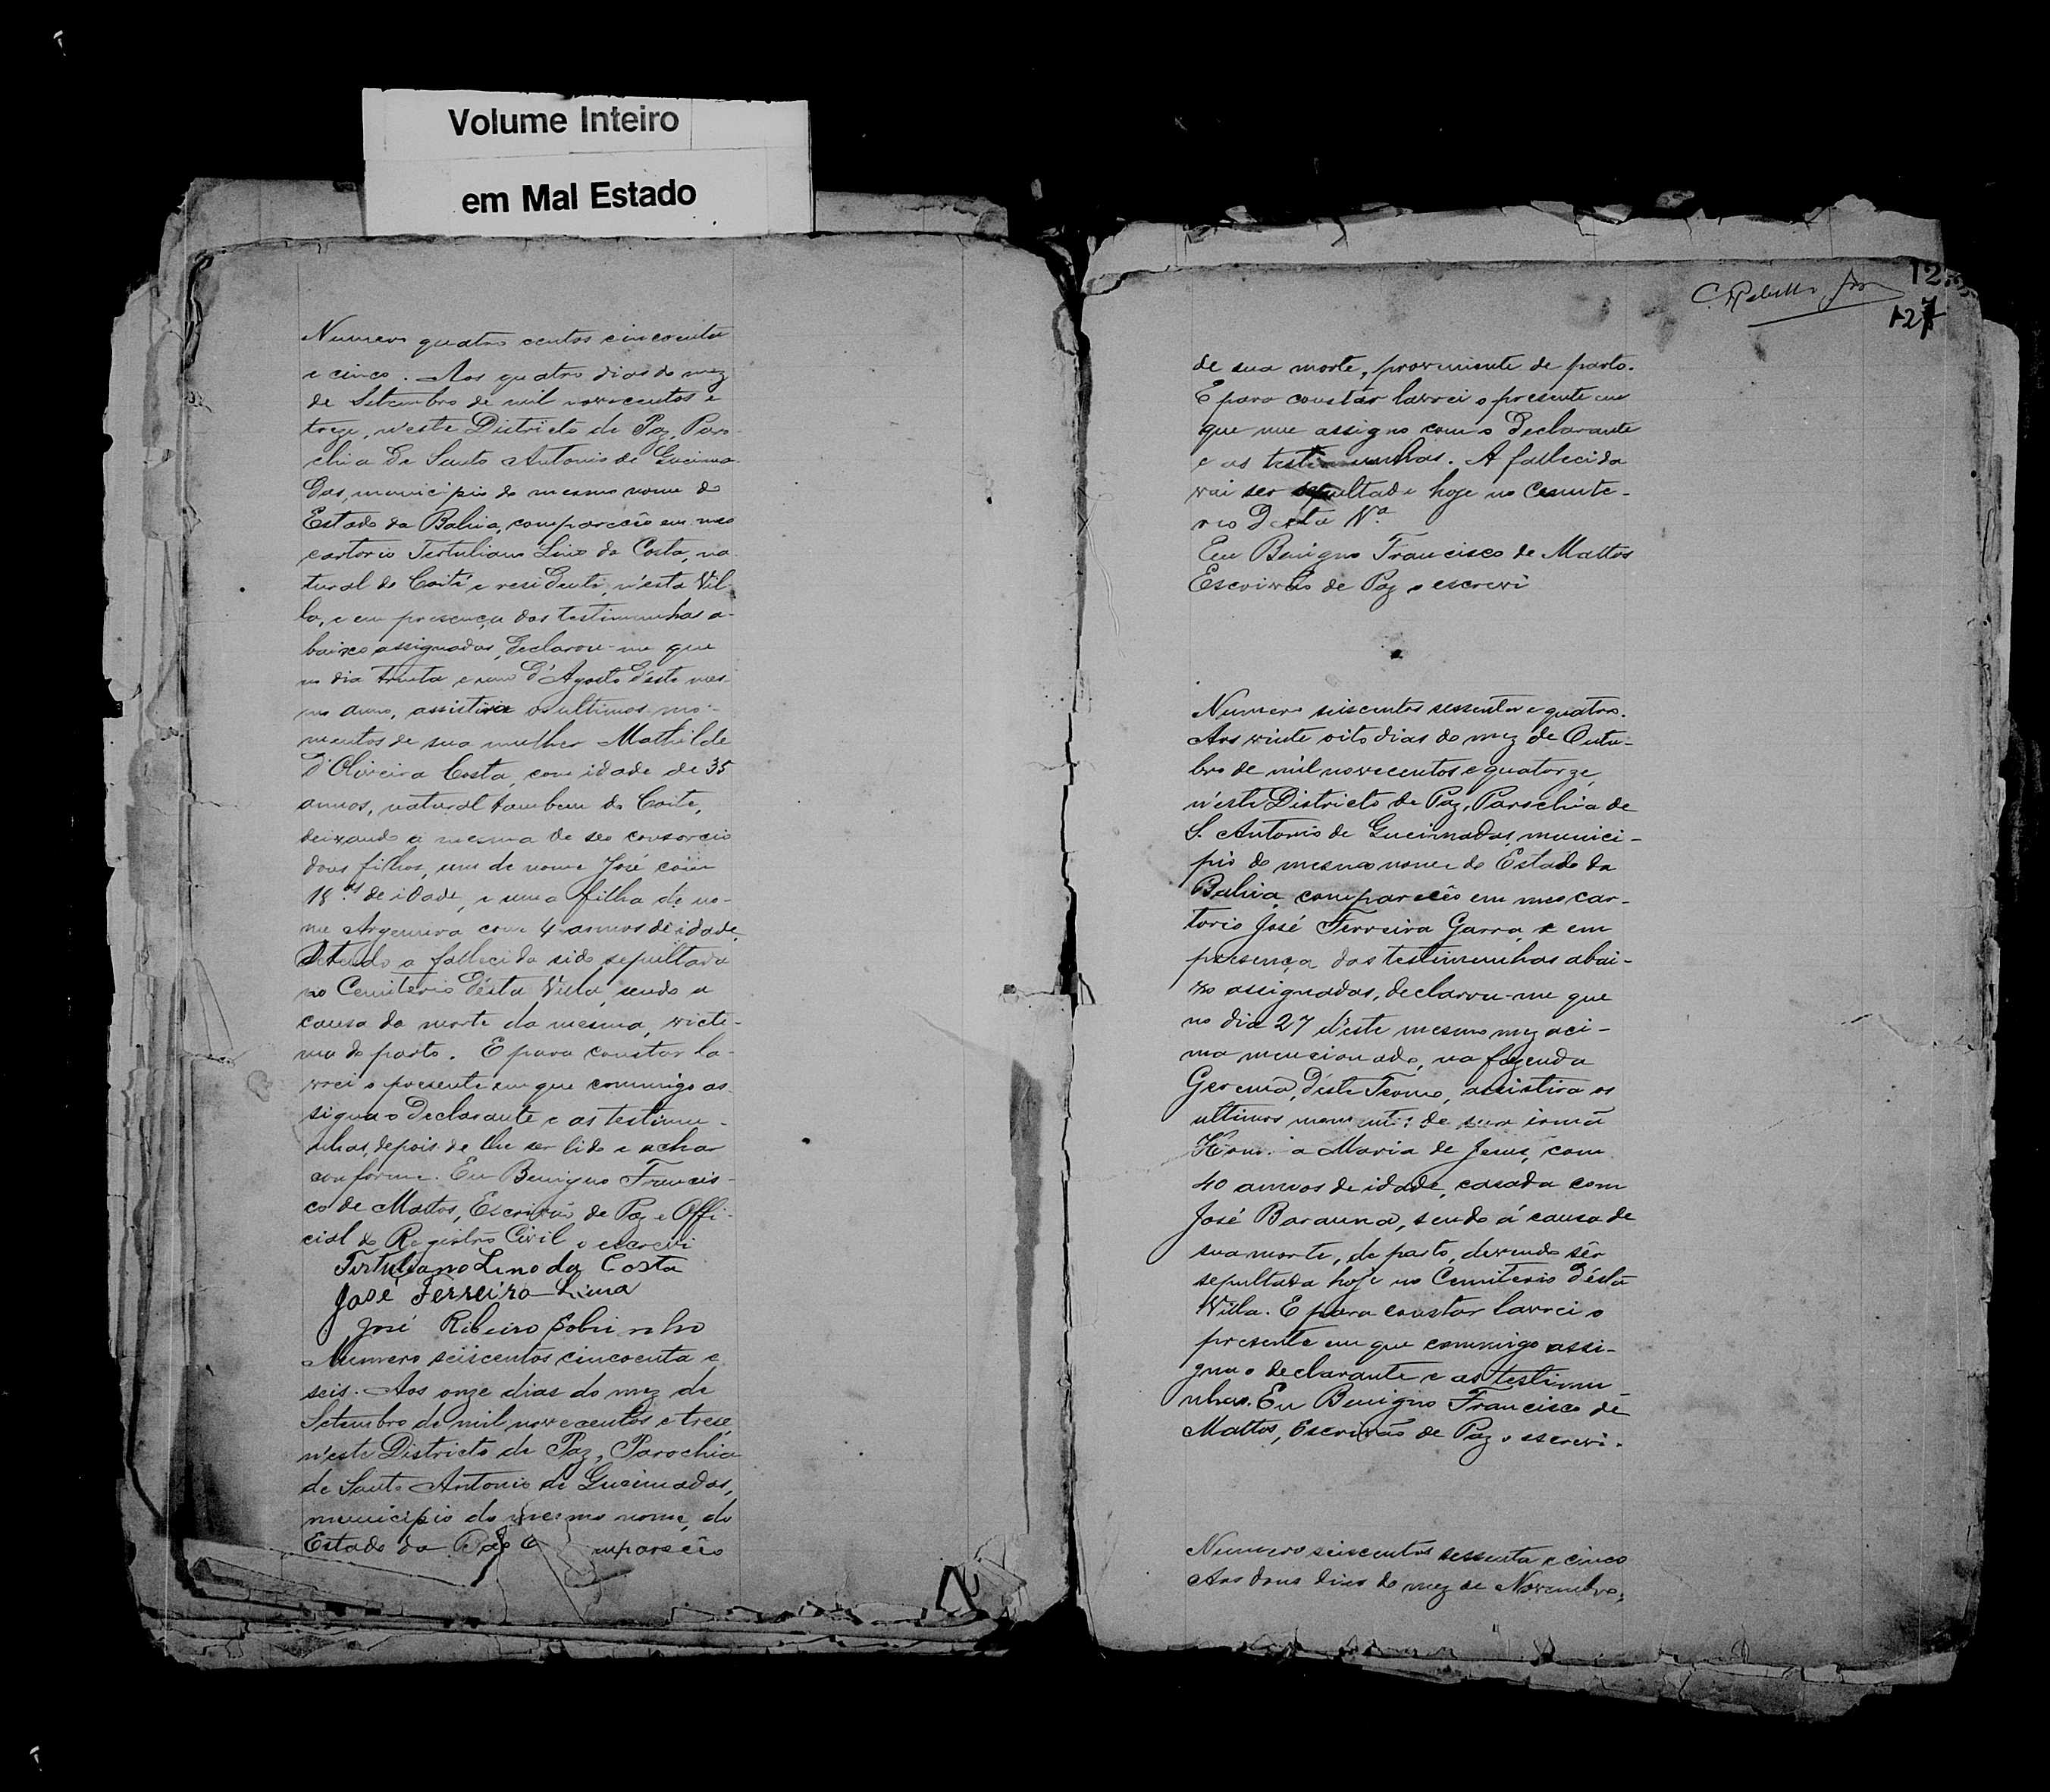 Volume Inteiro
em Mal Estado
Numero quatro centos cincoenta
e cinco. Aos quatro dias do mez
de Setembro de mil novecentos e
treze, n'este Districto de Paz, Paro-
chia de Santo Antonio de Queima-
das, municipio do mesmo nome do
Estado da Bahia, compareceo em meo
cartorio Tertuliano Lino da Costa, na-
tural do Coité e residente n'esta Vil-
la, e em presença das testimunhas a-
baixo assignadas, declarou-me que
no dia trinta e um d'Agosto d'este mes-
mo anno, assistira os ultimos mo-
mentos de sua mulher Mathilde
d'Oliveira Costa, com idade de 35
annos, natural tambem do Coité,
deixando a mesma de seo consorcio
dous filhos, um de nome José com
18 as de idade, e uma filha de no-
me Argemira com 4 annos de idade,
a fallecida sido sepultada
no Cemiterio d'esta Villa, sendo a
causa da morte da mesma, victi-
ma de parto. E para constar la-
vrei o presente em que commigo as-
signa o declarante e as testimu-
nhas, depois de lhe ser lido e achar
conforme. Eu Benigno Francis-
co de Mattos, Escrivão de Paz e Offi-
cial do Registro Civil o escrevi
Tertuliano Lino da Costa
José Ferreira Lima
José Ribeiro Sobrinho
Numero seiscentos cincoenta e
seis. Aos onze dias do mez de
Setembro de mil novecentos e trese,
n'este Districto de Paz, Parochia
de Santo Antonio de Queimadas,
municipio do mesmo nome, do
Estado da mpareceo
12
127
de sua morte, proveniente de parto.
E para constar lavrei o presente em
que me assigno com o declarante
e as testimunhas. A fallecida
vai ser sepultada hoje no Cemite-
rio desta Va
Eu Benigno Francisco de Mattos
Escrivão de Paz o escrevi
Numero seiscentos sessenta e quatro.
Aos vinte oito dias do mez de Outu-
bro de mil novecentos e quatorze,
n'este Districto de Paz, Parochia de
S. Antonio de Queimadas, munici-
pio do mesmo nome do Estado da
Bahia, compareceo em meo car-
torio José Ferreira Garra, e em
presença das testimunhas abai-
xo assignadas, declarou-me que
no dia 27 d'este mesmo mez aci-
ma mencionado, na fazenda
d'este Termo, assistira os
ultimos momentos de sua irmã
a Maria de Jesus, com
40 annos de idade, casada com
José Barauna, sendo á causa de
sua morte, de parto, devendo sêr
sepultada hoje no Cemiterio d'ésta
Villa. E para constar lavrei o
presente em que commigo assi-
gna o declarante e as testimu-
nhas. Eu Benigno Francisco de
Mattos, Escrivão de Paz o escrevi.
Numero seiscentos sessenta e cinco
Aos dous dias do mez de Novembro,